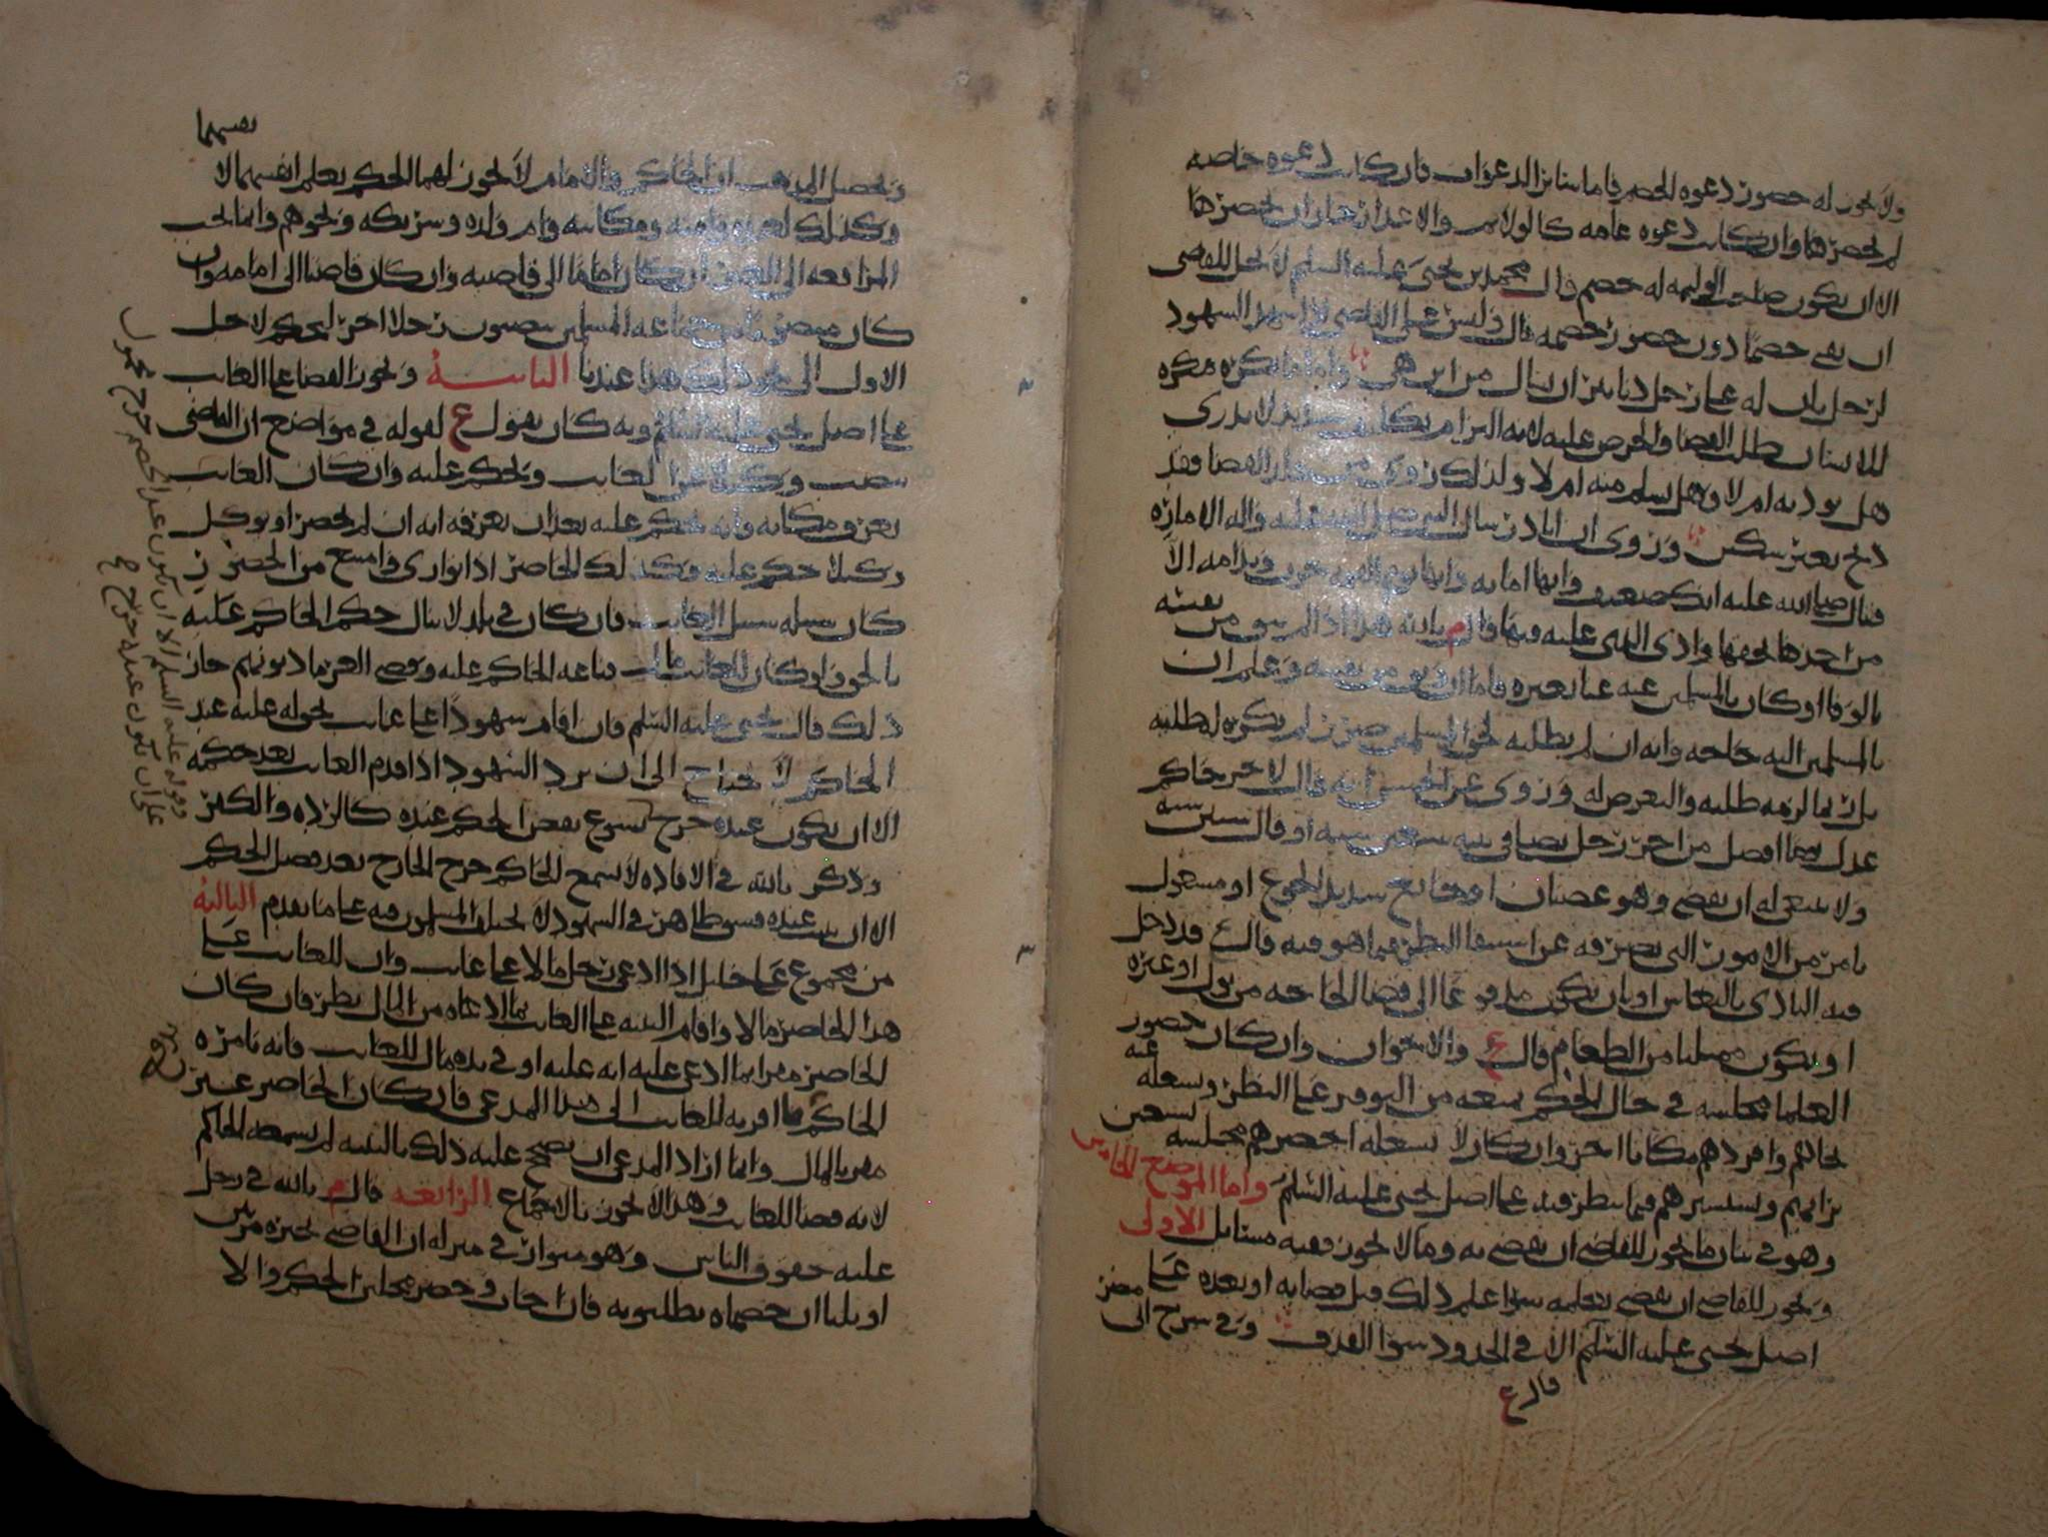 ولا يجوز له حضور دعوه الخصم فاما سائر الدعوات فان كانت دعوه خاصه
لم يحضرها وان كانت دعوه عامه كالولايم والاعذار جاز ان يحضرها
الا ان يكون صاحب الوليمه له خصم قال محمد بن يحيى عليه السلم لا يحل للقاضي
ان يلقي خصما دون حضور خصمه قال وليس على القاضي اذا شهد الشهود
لرجل بان له على رجل دنانير ان يسال من اين هي واما ما يكره فيكره
للانسان طلب القضا والحرص عليه لانه التزام تكليف لا يدري
هل يوديه ام لا وهل يسلم منه ام لا ولذلك روي من القضا فقد
ذبح بغير سكين وروي ان ابا ذر سال النبي صلى الله عليه واله الاماره
فقال صلى الله عليه انك ضعيف وانها امانه وانها يوم القيمه خزي وندامه الا
من اخذها بحقها وادى الذي عليه فيها قال م بالله هذا اذا لم يثق من نفسه
بالوفا او كان بالمسلمين عنه غنا بغيره فاما ان وثق من نفسه وعلم ان
بالمسلمين اليه حاجه وانه ان لم يطلبه لحق المسلمين ضرر لم يكره له طلبه
بل ربما لزمه طلبه والتعرض له وروي عن الحسن انه قال لاجر حاكم
عدل يوما افضل من اجر رجل يصلي في بيته سبعين سنه او قال ستين سنه
ولا ينبغي له ان يقضي وهو غضبان او جائع شديد الجوع او مشغول
بامر من الامور التي تصرفه عن استيفا النظر فيما هو فيه قال ع فدخل
فيه التاذي بالنعاس او بان يكون مدفوعا الى قضا الحاجه من بول او غيره
او يكون ممتليا من الطعام قال ع والاخوان وان كان حضور
العلما مجلسه في حال الحكم يمنعه من التوفر على النظر ويشغله عنه
نحاهم وافردهم مكانا اخر وان كان لا يشغله احضرهم مجلسه ليستعين
برايهم ويستشيرهم فيما ينظر فيه على اصل يحيى عليه السلم واما الموضع الخامس
وهو في بيان ما يجوز للقاضي ان يقضي به وما لا يجوز ففيه مسايل الاولى
ويجوز للقاضي ان يقضي بعلمه سوا علم ذلك قبل قضايه او بعده على
اصل يحيى عليه السلم الا في الحدود سوا القذف وفي شرح ابي مضر
قال ع
وتحصيل المذهب ان الحاكم والامام لا يجوز لهما الحكم بعلم انفسهما لا نفسهما
وكذلك لعبده وامته ومكاتبه وام ولده وشريكه ونحوهم وانما يجب
المرافعه الى الغير ان كان اماما الى قاضيه وان كان قاضيا الى امامه وان
كان منصوبا من جماعه المسلمين ينصبون رجلا اخر ليحكم لا جل
الاول الى هذا عندنا الثانيه ويجوز القضا على الغايب
على اصل يحيى عليه السلم وبه كان يقول ع لقوله في مواضع ان القاضي
ينصب وكيلا عن الغايب ويحكم عليه وان كان الغايب
يعرف مكانه فانه يحكم عليه بعد ان يعرفه انه ان لم يحضر او يوكل
وكيلا حكم عليه وكذلك الحاضر اذا توارى وامتنع من الحضور
كان سبيله سبيل الغايب فان كان في بلد لا ينال حكم الحاكم عليه
بالحق وكان للغايب مال فباعه الحاكم عليه وقضى الغرما ديونهم جاز
ذلك قال يحيى عليه السلم فان اقام شهودا على غايب بحق له عليه عند
الحاكم لا يحتاج الى ان يرد الشهود اذا قدم الغايب بعد حكمه
الا ان يكون عنده جرح يسوغ نقض الحكم عنده كالرده والكفر
وذكر بالله في الافاده لا يسمع الحاكم جرح الجارح بعد فصل الحكم
الا ان يثبت عنده فسق ظاهر في الشهود لا يختلف المسلمون فيه على ما تقدم الثالثه
من مجموع علي خليل اذا ادعى رجل مالا على غايب وان للغايب على
هذا الحاضر مالا واقام البينه على الغايب بما ادعاه من المال نظر فان كان
الحاضر مقرا بما ادعى عليه انه عليه او في يده مال للغايب فانه يامره
الحاكم بما اقر به للغايب الى هذا المدعي فان كان الحاضر غير
مقر بالمال وانما اراد المدعي ان يصحح عليه ذلك بالبينه لم يسمعه الحاكم
لانه قضا للغايب وهذا لا يجوز بالاجماع الرابعه قال م بالله في رجل
عليه حقوق الناس وهو متوار في منزله ان القاضي يخبره مرتين
او ثلثا ان خصماه يطلبونه فان اجاب وحضر مجلس الحكم والا
وقوله عليه السلم الا ان يكون عند الخصم جرح محمول
على ان تكون عنده جرح ح